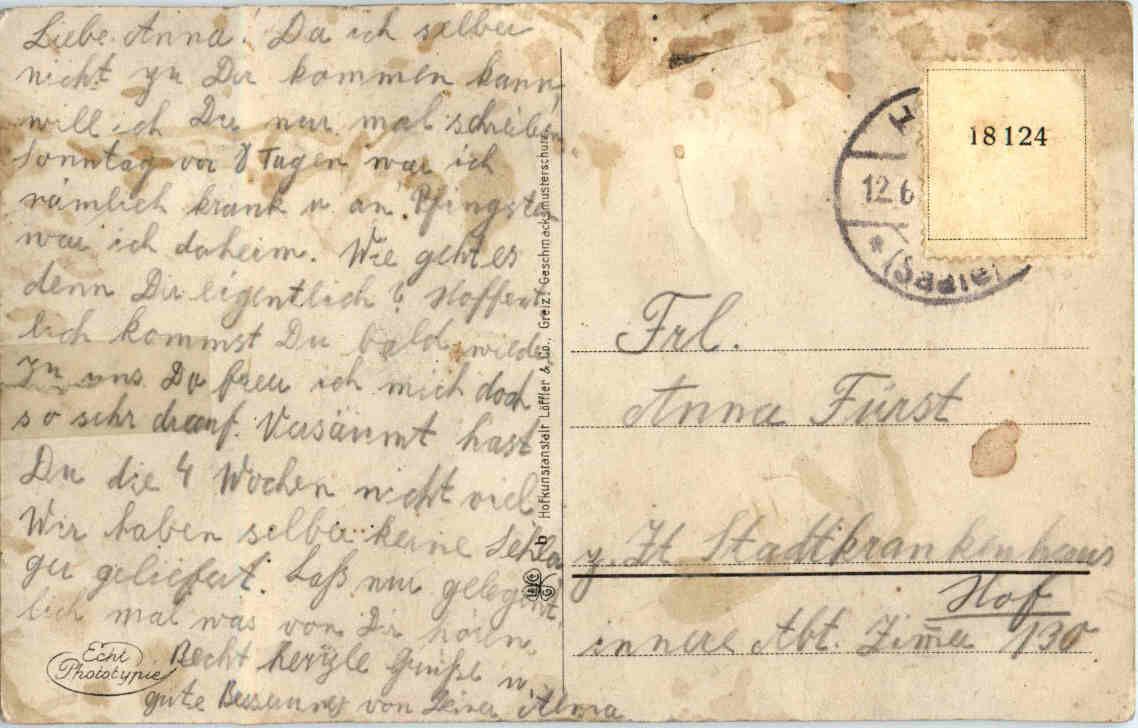 Liebe Anna! Da ich selber
nicht zu Dir kommen kann,
will ich Dir nur mal schreiben
Sonntag vor 8 Tagen war ich
nämlich krank u. an Pfingsten
war ich daheim. Wie geht es
denn Dir eigentlich? Hoffent
lich kommst Du bald wieder
zu uns. Da freu ich mich doch
so sehr drauf. Versäumt hast
Du die 4 Wochen nicht viel
Wir haben selber keine Schla
ger geliefert. Laß nur gelegent
lich mal was von Dir hören.
Recht herzle Grüße u.
gute Besserung von Deiner Alma
Echt
Phototypie
b Hofkunstanstalt Löffler & Co., Greiz! Geschmacksmusterschutz
18 124
12.6
Frl.
Anna Fürst
z. Zt Stadtkrankenhaus
Hof
innere Abt. Zimer 130